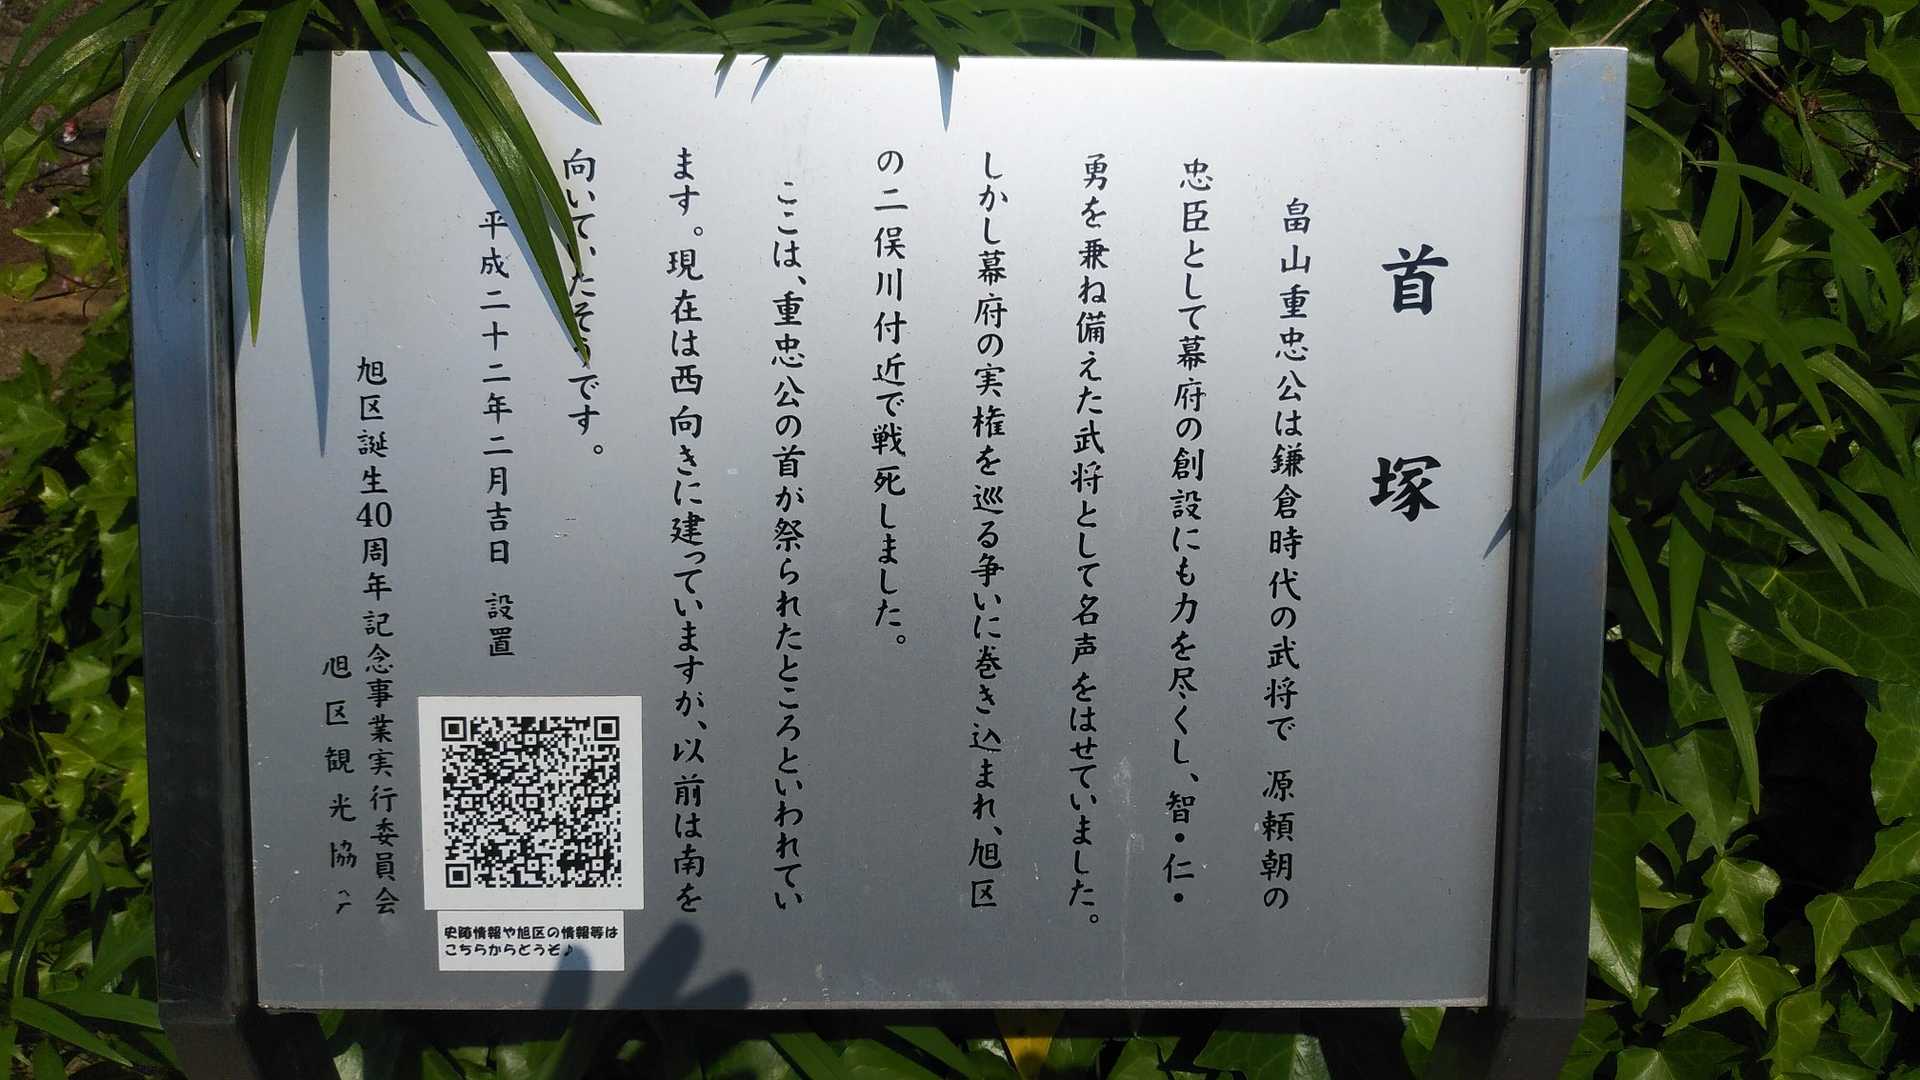 首塚
畠山重忠公は鎌倉時代の武将で 源頼朝の
忠臣として幕府の創設にも力を尽くし、智・仁・
勇を兼ね備えた武将として名声をはせていました。
しかし幕府の実権を巡る争いに巻き込まれ、旭区
の二俣川付近で戦死しました。
ここは、重忠公の首が祭られたところといわれてい
ます。現在は西向きに建っていますが、以前は南を
向いていたそうです。
平成二十二年二月吉日 設置
旭区誕生40周年記念事業実行委員会
旭区観光協
史跡情報や旭区の情報等は
こちらからどうぞ♪